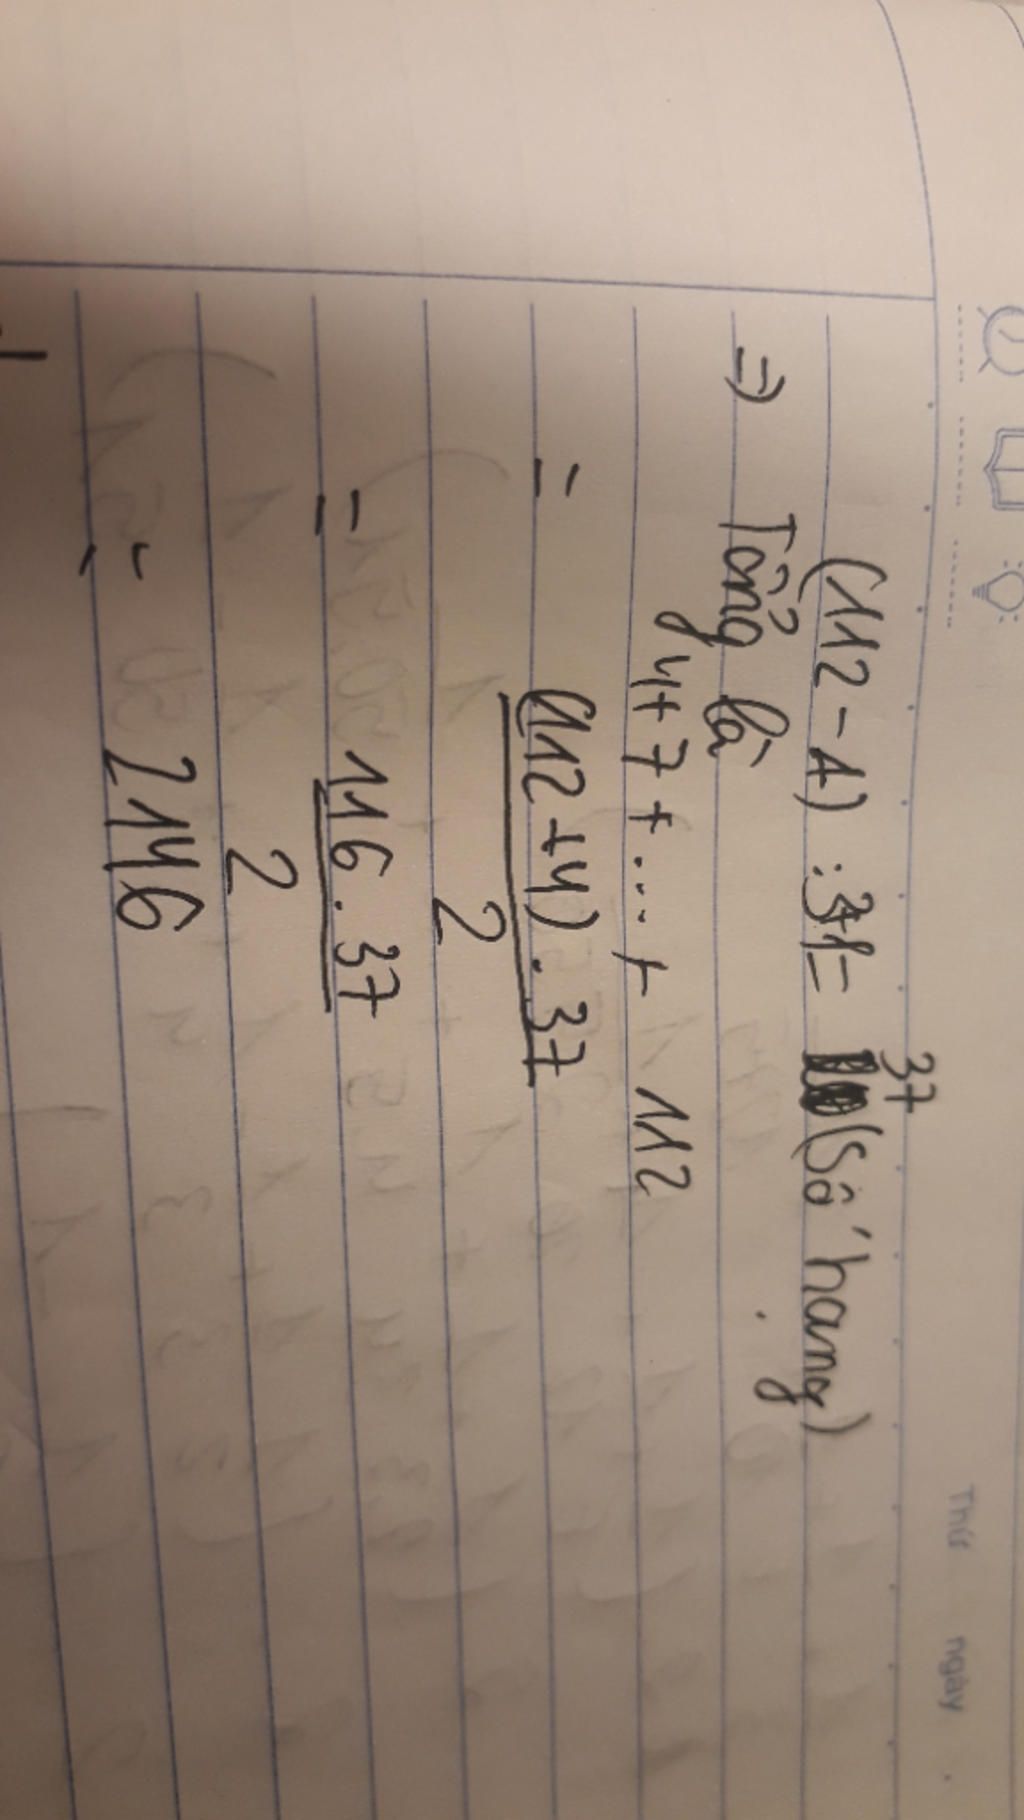 Thứ ngày
37
(112-1):3+1= (Số hạng)
=) Tổng là
4+7+...+ 112
= (112+4).37
2
= 116.37
2
= 2146